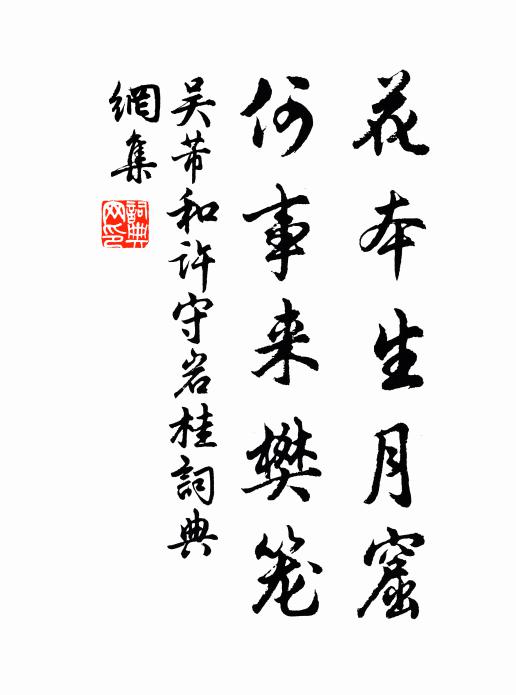 花本生月窟
何事来樊笼
吴芾和许守岩桂詞典
網集
詞典網印